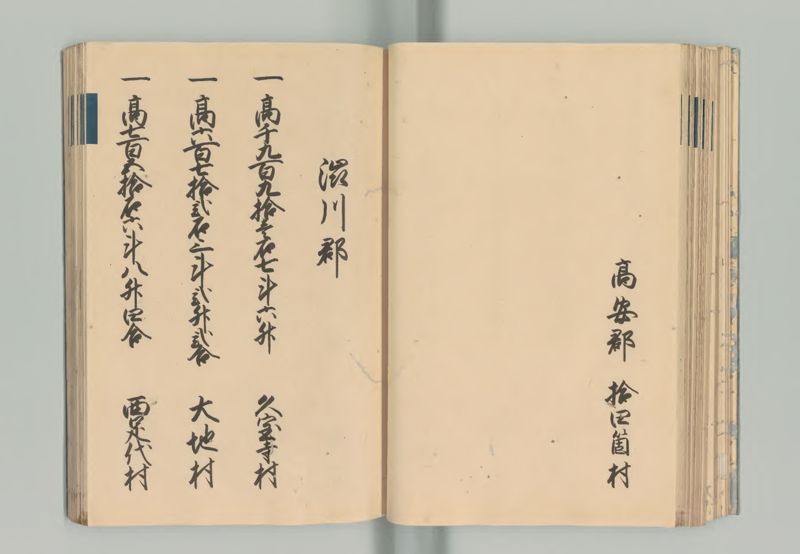 高安郡 拾四箇村
澁川郡
一 高千九百九拾壱石七斗六升 久宝寺村
一 高六百七拾弐石三斗弐升弐合 大地村
一 高七百五拾石六斗八升四合 西足代村